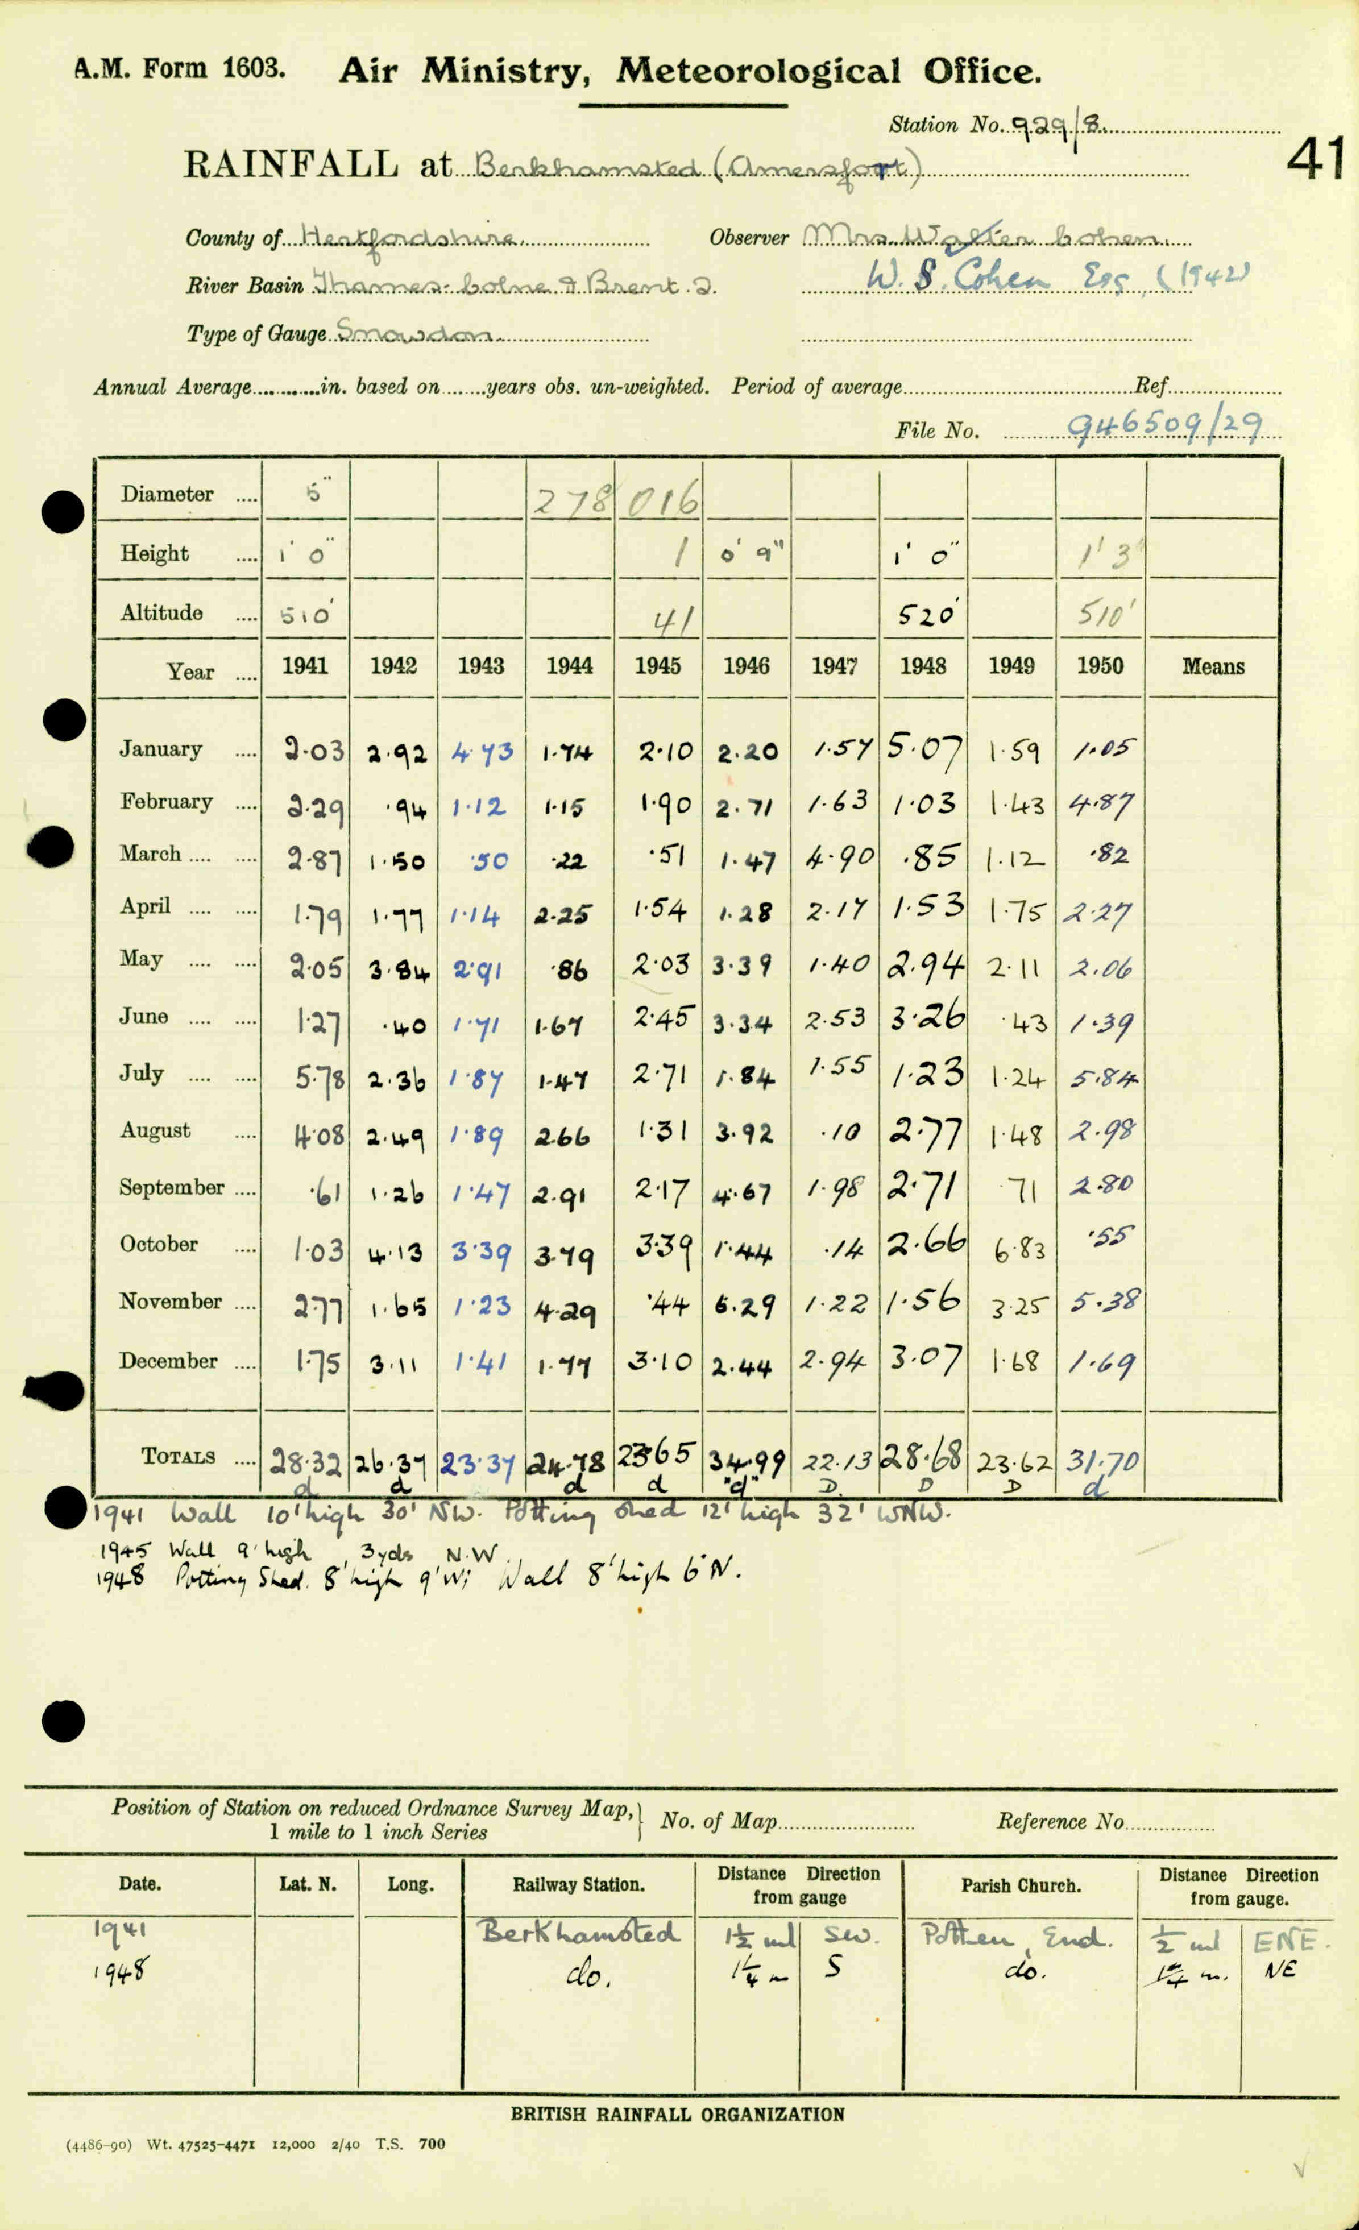 A.M. Form 1603. Air Ministry, Meteorological Office.
Station No. 929/8
41
RAINFALL at Berkhamsted (Amersfort)
County of Hertfordshire Observer Mrs. Walter Cohen
River Basin Thames-Colne & Brent. 2. W. S. Cohen Esq. (1942)
Type of Gauge Snowdon
Annual Average............in. based on........years obs. un-weighted. Period of average........ Ref........
File No. 946509/29
Diameter .... 5" 278 016
Height .... 1' 0" 1 0' 9" 1' 0" 1' 3"
Altitude .... 510' 41 520' 510'
Year .... 1941 1942 1943 1944 1945 1946 1947 1948 1949 1950 Means
January .... 2.03 2.92 4.73 1.74 2.10 2.20 1.57 5.07 1.59 1.05
February .... 2.29 .94 1.12 1.15 1.90 2.71 1.63 1.03 1.43 4.87
March .... .... 2.87 1.50 .50 .22 .51 1.47 4.90 .85 1.12 .82
April .... .... 1.79 1.77 1.14 2.25 1.54 1.28 2.17 1.53 1.75 2.27
May .... .... 2.05 3.84 2.91 .86 2.03 3.39 1.40 2.94 2.11 2.06
June .... .... 1.27 .40 1.71 1.67 2.45 3.34 2.53 3.26 .43 1.39
July .... .... 5.78 2.36 1.87 1.47 2.71 1.84 1.55 1.23 1.24 5.84
August .... 4.08 2.49 1.89 2.66 1.31 3.92 .10 2.77 1.48 2.98
September .... .61 1.26 1.47 2.91 2.17 4.67 1.98 2.71 .71 2.80
October .... 1.03 4.13 3.39 3.79 3.39 1.44 .14 2.66 6.83 .55
November .... 2.77 1.65 1.23 4.29 .44 6.29 1.22 1.56 3.25 5.38
December .... 1.75 3.11 1.41 1.77 3.10 2.44 2.94 3.07 1.68 1.69
TOTALS .... 28.32 26.37 23.37 24.78 23.65 34.99 22.13 28.68 23.62 31.70
d d d d "d" D D D d
1941 Wall 10' high 30' NW. Potting shed 12' high 32' WNW.
1945 Wall 9' high, 3yds N.W.
1948 Potting Shed. 8' high 9' W; Wall 8' high 6' N.
Position of Station on reduced Ordnance Survey Map, 1 mile to 1 inch Series } No. of Map........ Reference No........
Date. Lat. N. Long. Railway Station. Distance Direction from gauge Parish Church. Distance Direction from gauge.
1941 Berkhamsted 1½ ml SW. Potten End. ½ ml ENE.
1948 do. 1¼ m S do. 1¼ m. NE
BRITISH RAINFALL ORGANIZATION
(4486-90) Wt. 47525-4471 12,000 2/40 T.S. 700